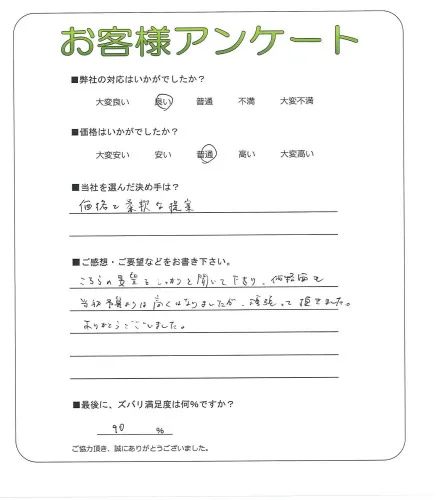 お客様アンケート
■弊社の対応はいかがでしたか？
大変良い 良い 普通 不満 大変不満
■価格はいかがでしたか？
大変安い 安い 普通 高い 大変高い
■当社を選んだ決め手は？
価格と柔軟な提案
■ご感想・ご要望などをお書き下さい。
こちらの要望をしっかりと聞いて下さり、価格面も
当初予算よりは高くはなりましたが、頑張って頂きました。
ありがとうございました。
■最後に、ズバリ満足度は何％ですか？
90 ％
ご協力頂き、誠にありがとうございました。